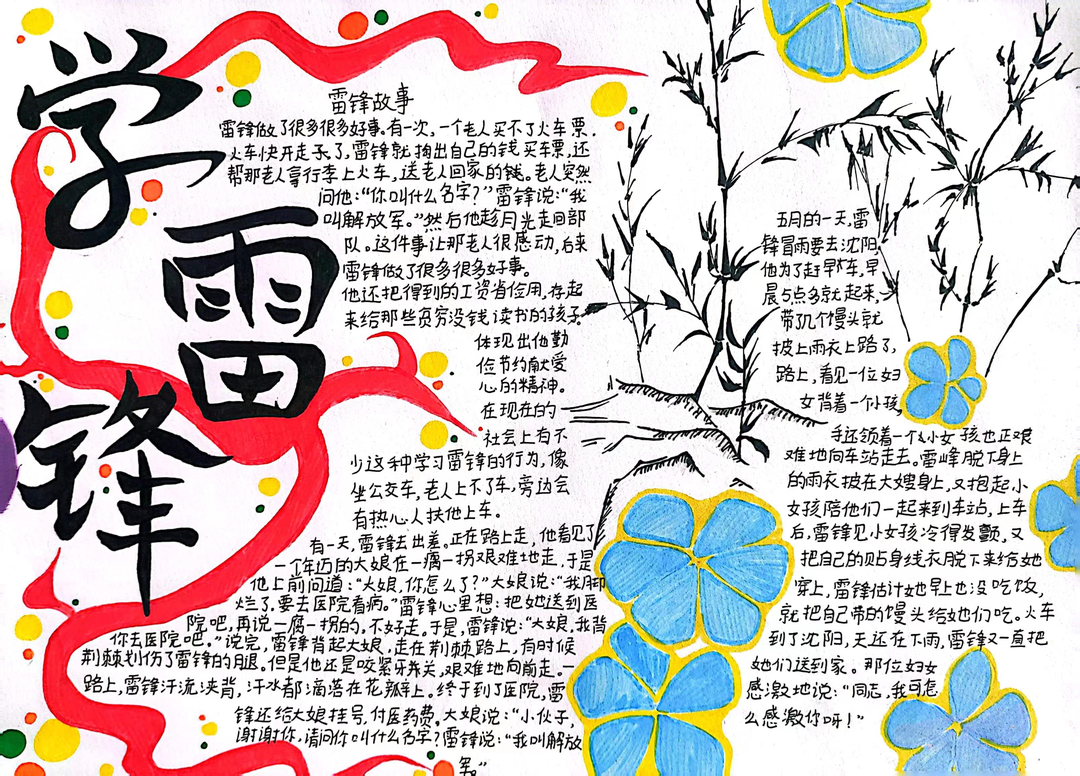 学
雷
锋
雷锋故事
雷锋做了很多很多好事。有一次,一个老人买不了火车票.
火车快开走了,雷锋就掏出自己的钱买车票,还
帮那老人拿行李上火车,送老人回家的钱。老人突然
问他:“你叫什么名字?”雷锋说:“我
叫解放军。”然后他趁月光走回部
队。这件事让那老人很感动,后来
雷锋做了很多很多好事。
他还把得到的工资省俭用,存起
来给那些贫穷没钱读书的孩子
体现出他勤
俭节约献爱
心的精神。
在现在的
社会上有不
少这种学习雷锋的行为,像
坐公交车,老人上不了车,旁边会
有热心人扶他上车。
有一天,雷锋去出差。正在路上走,他看见了
一个年迈的大娘在一瘸一拐艰难地走,于是
他上前问道:“大娘,你怎么了?”大娘说:“我脚
烂了,要去医院看病。”雷锋心里想:把她送到医
院吧,再说一腐一拐的。不好走。于是,雷锋说:“大娘,我背
你去医院吧。”说完,雷锋背起大娘,走在荆棘路上,有时候
荆棘划伤了雷锋的月腿。但是他还是咬紧牙关,艰难地向前走。一
路上,雷锋汗流浃背,汗水都滴落在花瓣上。终于到了医院,雷
锋还给大娘挂号,付医药费。大娘说:“小伙子,
谢谢你,请问你叫什么名字?雷锋说:“我叫解放
军。”
五月的一天,雷
锋冒雨要去沈阳,
他为了赶早车,早
晨5点多就起来,
带几个馒头就
披上雨衣上路了,
路上,看见一位妇
女背着一个小孩,
手还领着一个小女孩也正艰
难地向车站走去。雷峰脱下身上
的雨衣披在大嫂身上,又抱起小
女孩陪他们一起来到车站,上车
后,雷锋见小女孩冷得发颤,又
把自己的贴身线衣脱下来给她
穿上,雷锋估计她早上也没吃饭,
就把自己带的馒头给她们吃。火车
到了沈阳,天还在下雨,雷锋又一直把
她们送到家。那位妇女
感激地说:“同志,我可怎
么感激你呀!”